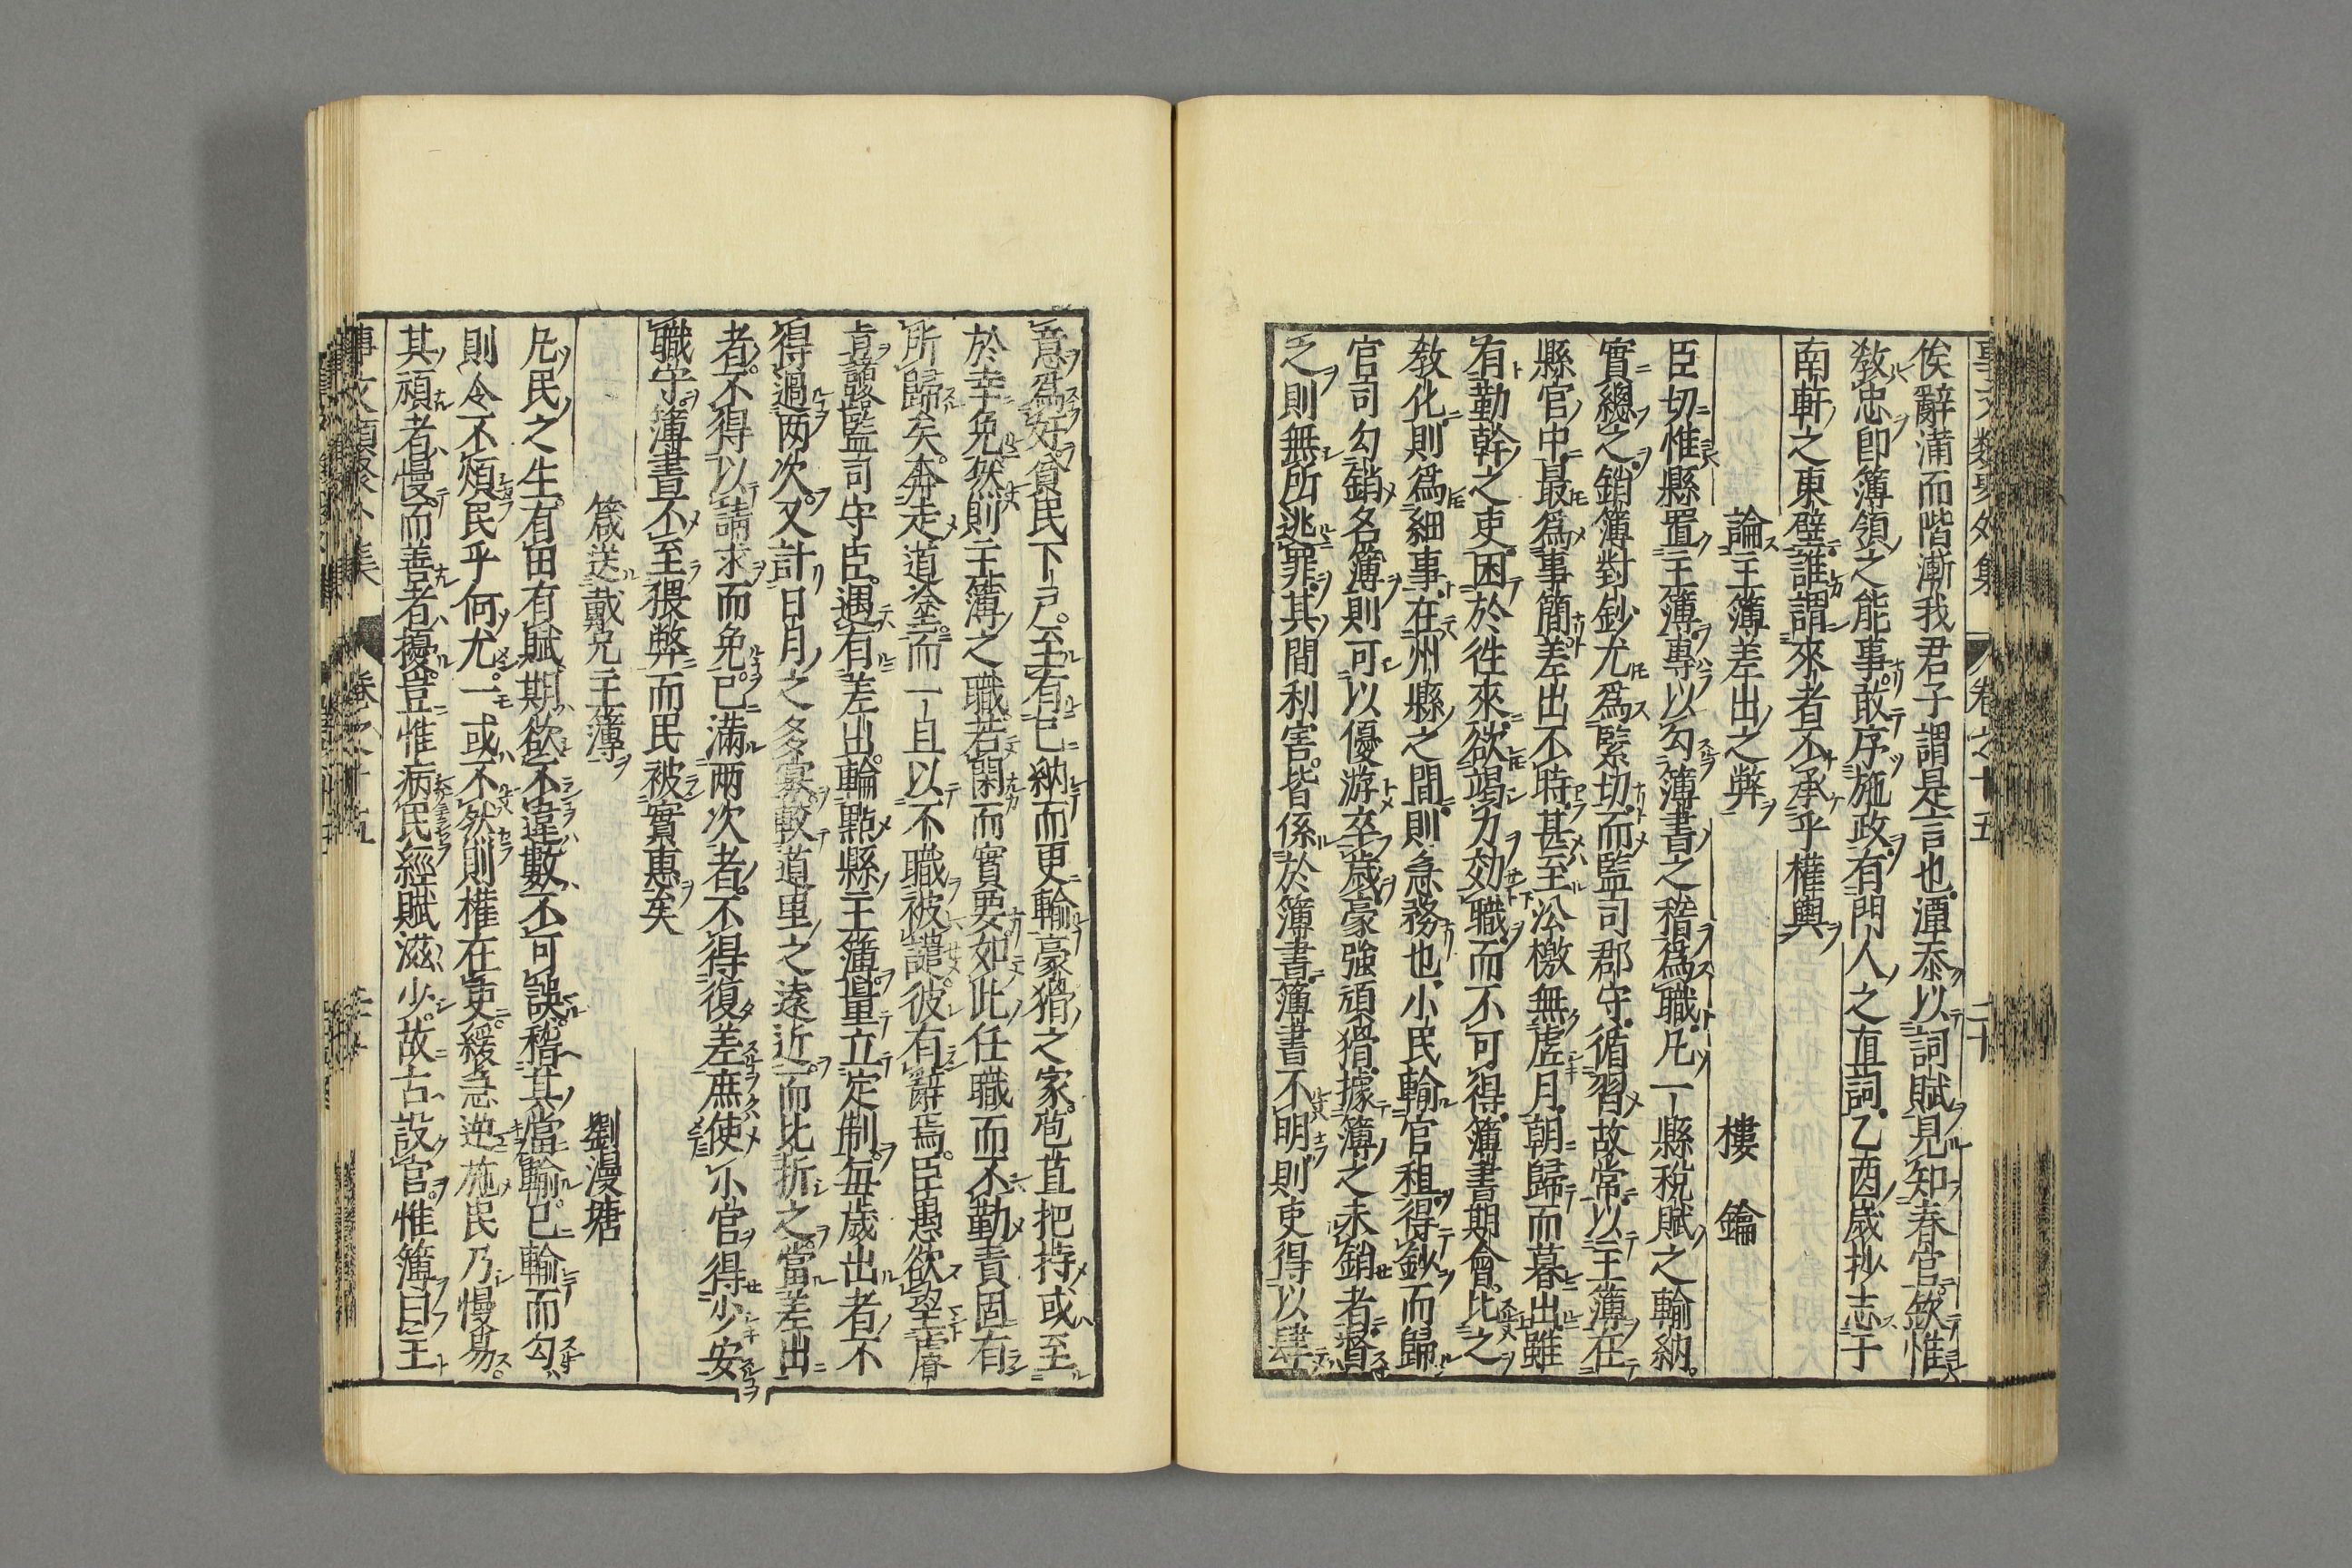 事文類聚外集 卷之十五 二十
俟辭蒲而階漸我君子謂是言也潭忝以詞賦見知春官欽惟
教忠卽簿領之能事敢序施政有門人之直詞乙酉歲抄志于
南軒之東壁誰謂來者不承乎權輿
論主簿差出之弊 樓鑰
臣切惟縣置主簿專以勾簿書之稽爲職凡一縣稅賦之輸納
實總之銷簿對鈔尤爲緊切而監司郡守循習故常以主簿在
縣官中最爲事簡差出不時甚至沿檄無虗月朝歸而暮出雖
有勤幹之吏困於徃來欲竭力効職而不可得簿書期會比之
敎化則爲細事在州縣之間則急務也小民輸官租得鈔而歸
官司勾銷名簿則可以優游卒歲豪強頑猾據簿之未銷者督
之則無所逃罪其間利害皆係於簿書簿書不明則吏得以肆
意爲奸貧民下戶至有已納而更輸豪猾之家苞苴把持或至
於幸免然則主簿之職若閑而實要如此任職而不勤責固有
所歸矣奔走道塗而一旦以不職被譴彼有辭焉臣愚欲望睿
肯諸監司守臣遇有差出輪點縣主簿量立定制每歲出者不
得過两次又計日月之多寡較道里之遠近而比折之當差出
者不得以請求而免已滿两次者不得復差庶使小官得少安
職守簿書不至猥弊而民被實惠矣
箴送戴兄主簿 劉漫塘
凡民之生有田有賦期欲不違數不可誤稽其當輸已輸而勾
則令不煩民乎何尤一或不然則權在吏緩急迯施民乃慢易
其頑者慢而善者擾豈惟病民經賦滋少故古設官惟簿曰主
事文類聚外集 卷之十五